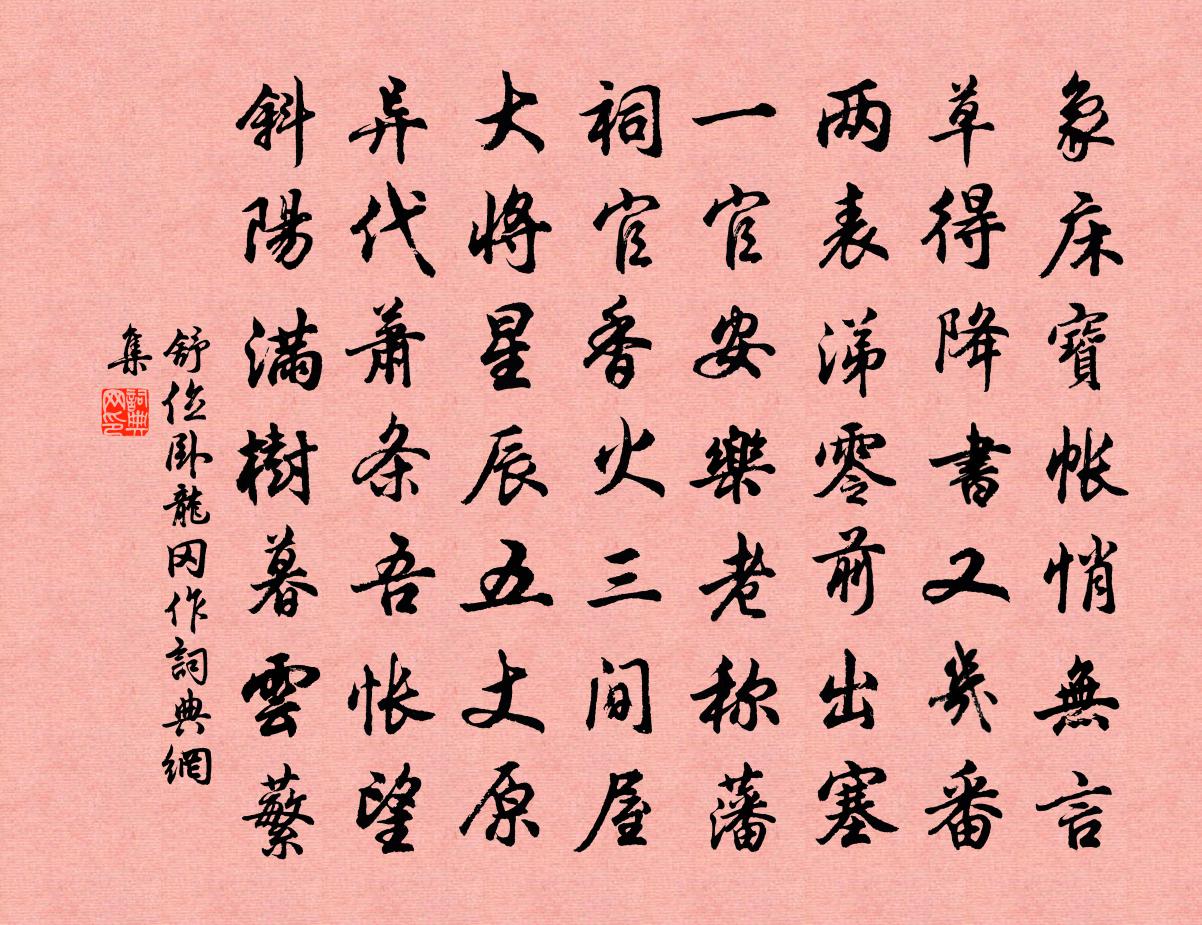 象床寶帐悄無言
草得降書又幾番
两表涕零前出塞
一官安樂老称藩
祠官香火三间屋
大將星辰五丈原
异代萧条吾怅望
斜陽满樹暮雲蘩
舒位卧龍冈作詞典網
集
詞典网印